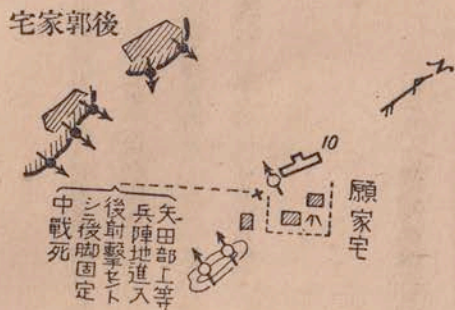 宅家郭後
N
10
願家宅
矢田部上等
兵陣地進入
後射撃セント
シ後脚固定
中戦死